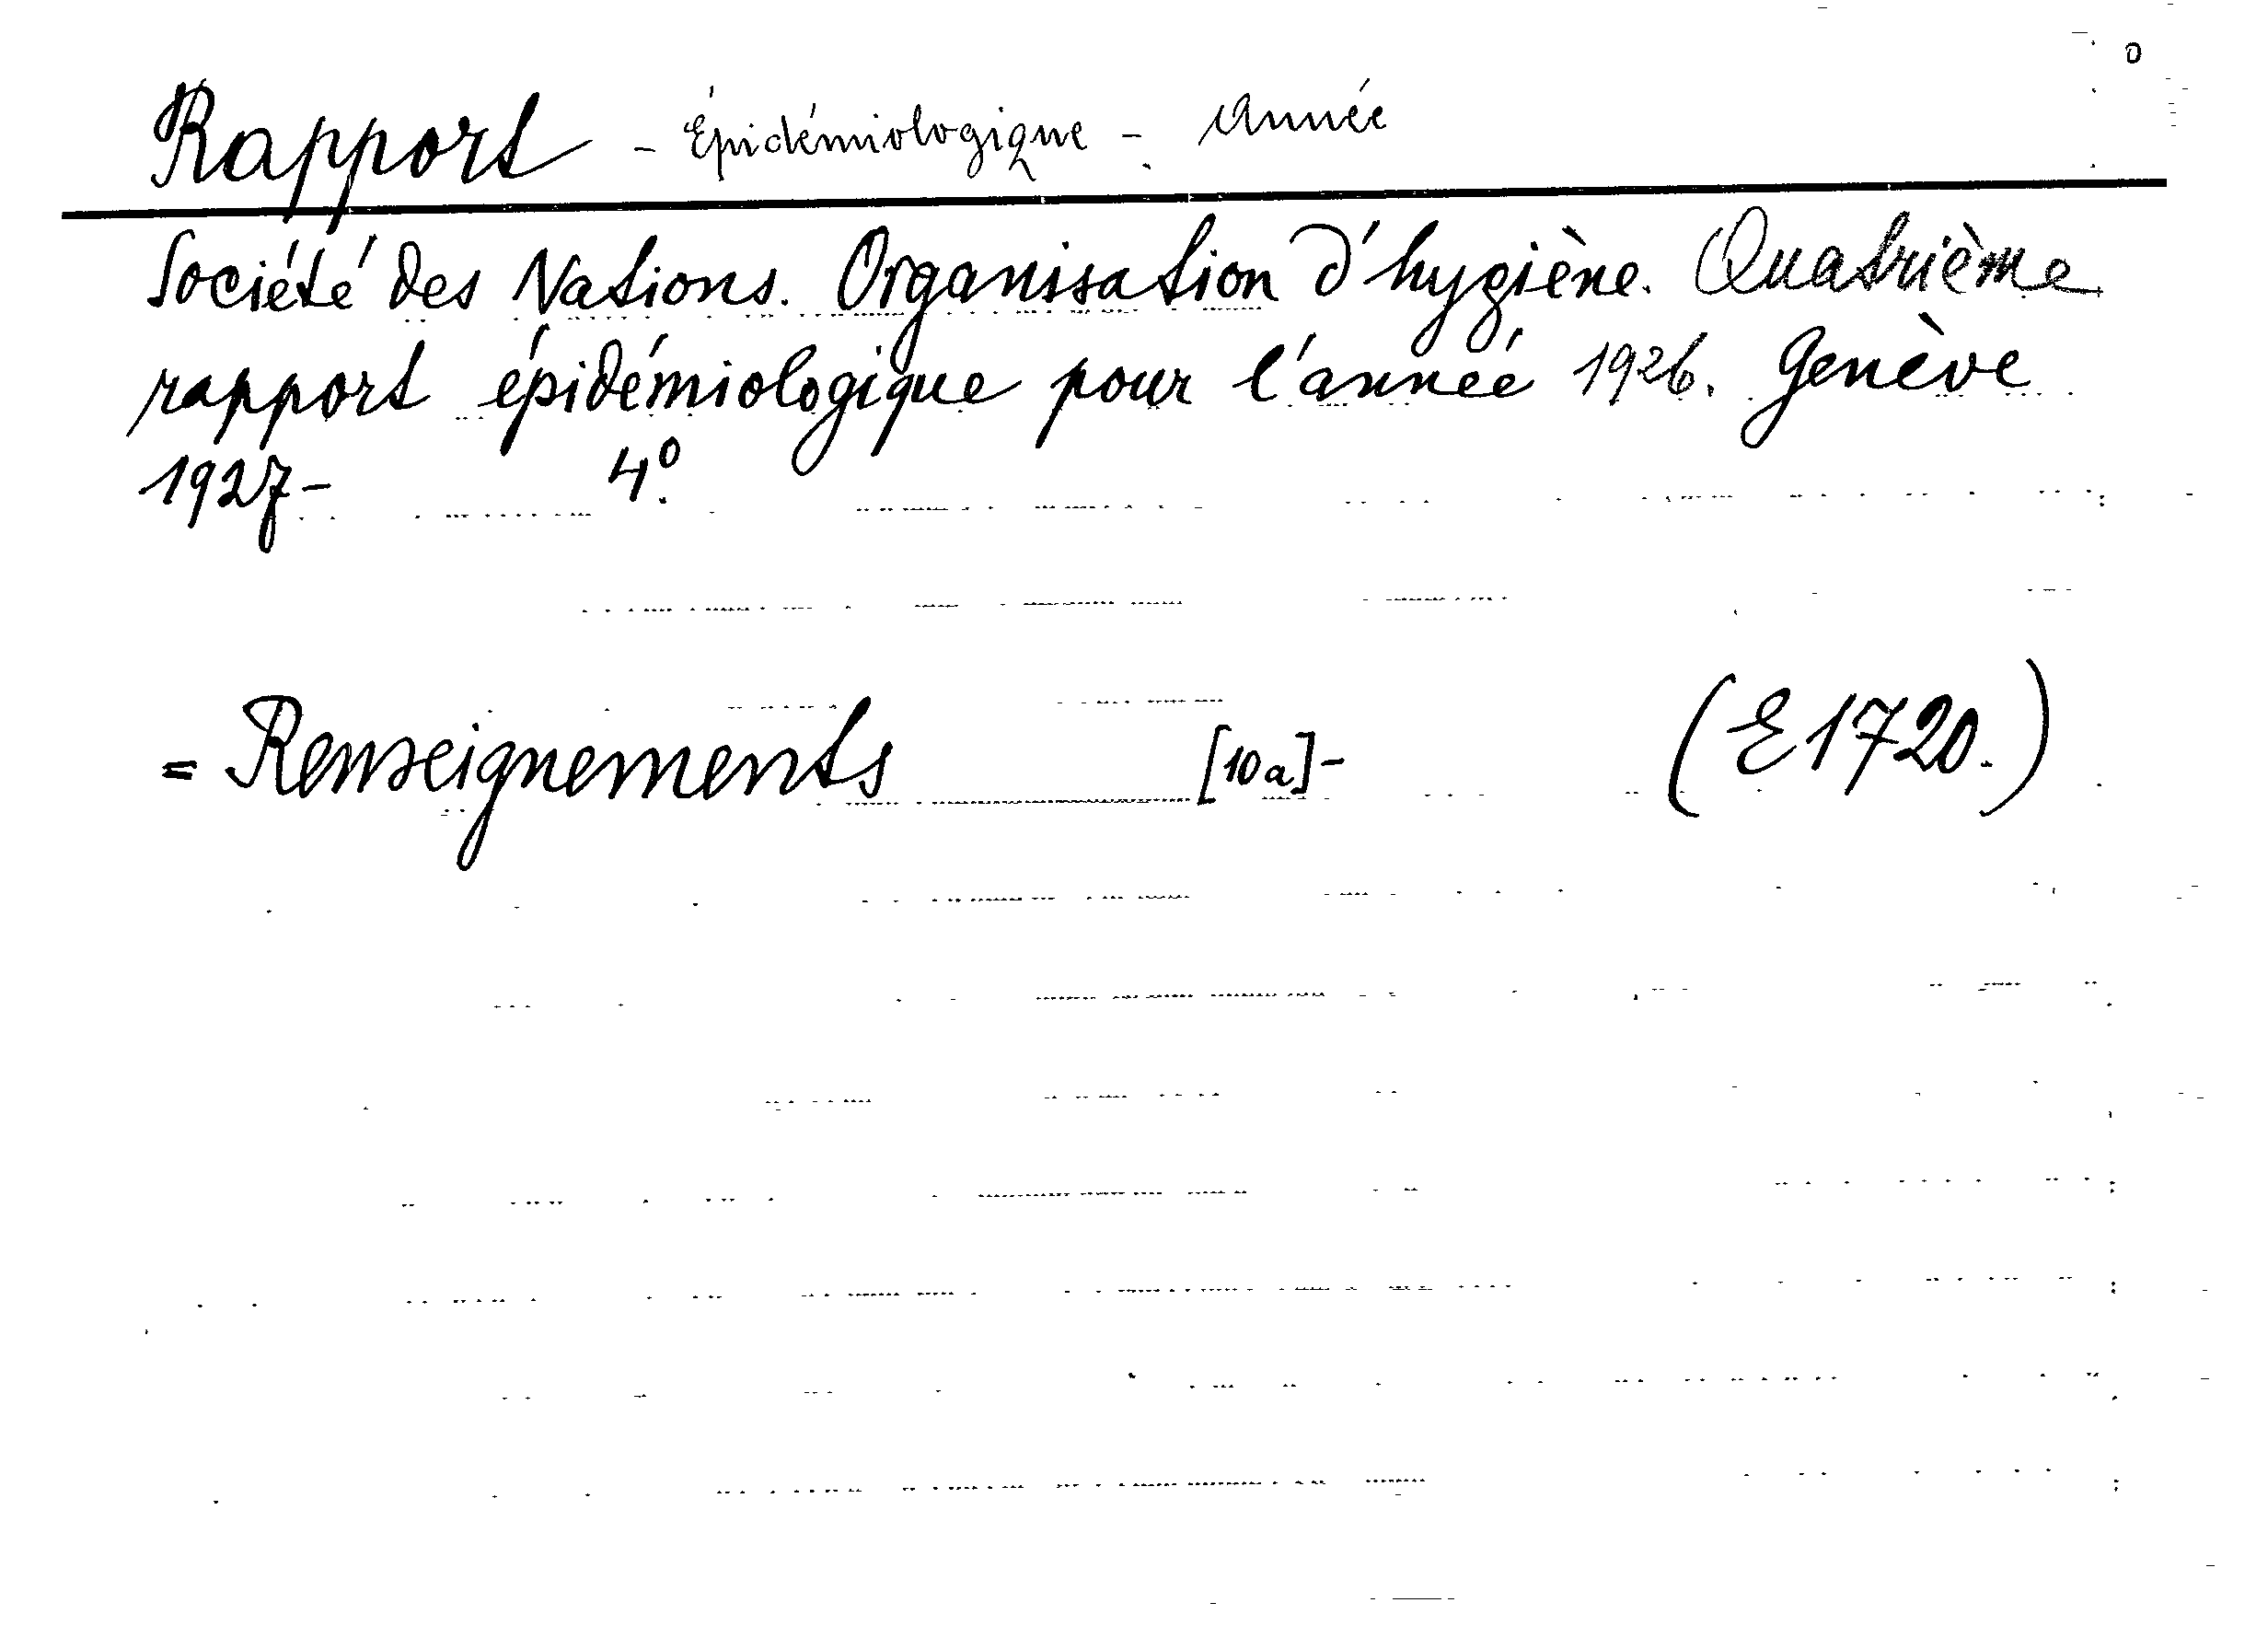 Rapport - Épidémiologique - Année
Société des Nations. Organisation d'hygiène. Quatrième
rapport épidémiologique pour l'année 1926. Genève
1927- 4º.
= Renseignements [10a]- (E1720.)